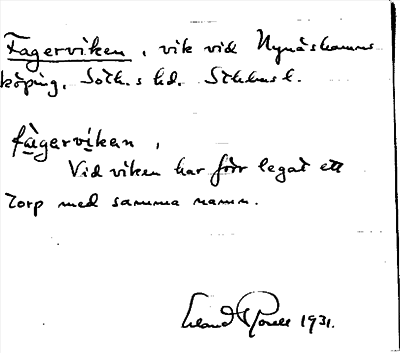 Fagerviken, vik vid Nynäshamns
köping, Sotk.s hd. Sthlms l.
fàgerviken,
Vid viken har förr legat ett
torp med samma namn.
1931.